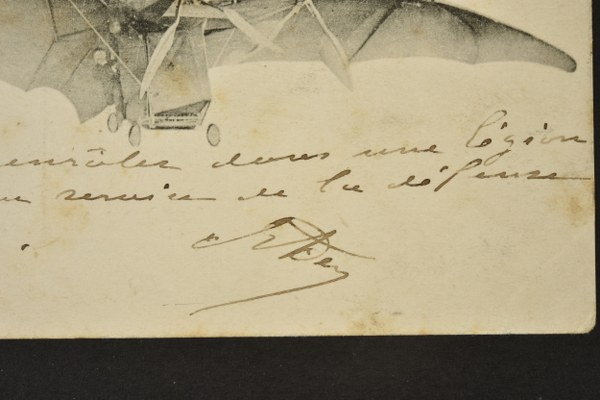 enrôler dans une légion
au service de la défense
Ader